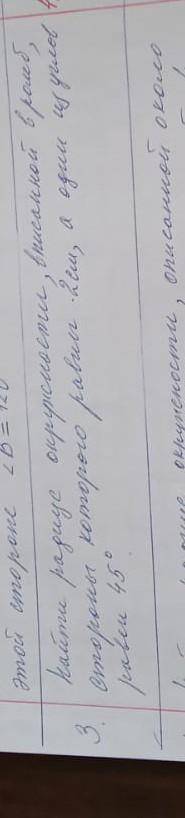 этой стороне ∠B = 120
3. Найти радиус окружности, вписанной в ромб,
стороны которого равны 2см, а один из углов
равен 45°
окружности, описанной около